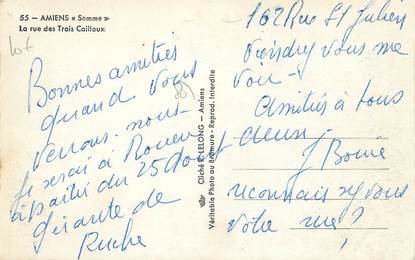 55 - AMIENS « Somme »
La rue des Trois Cailloux
Bonnes amitiés
quand vous
verrons-nous
Je serai à Rouen
à partir du 25 Aout
gérante de
Ruche
Cliché R. LELONG - Amiens
Véritable Photo au Bromure - Reprod. Interdite
162 Rue St Julien
Viendrez vous me
voir -
Amitiés à tous
deux
J
reconnaissez vous
votre rue ?